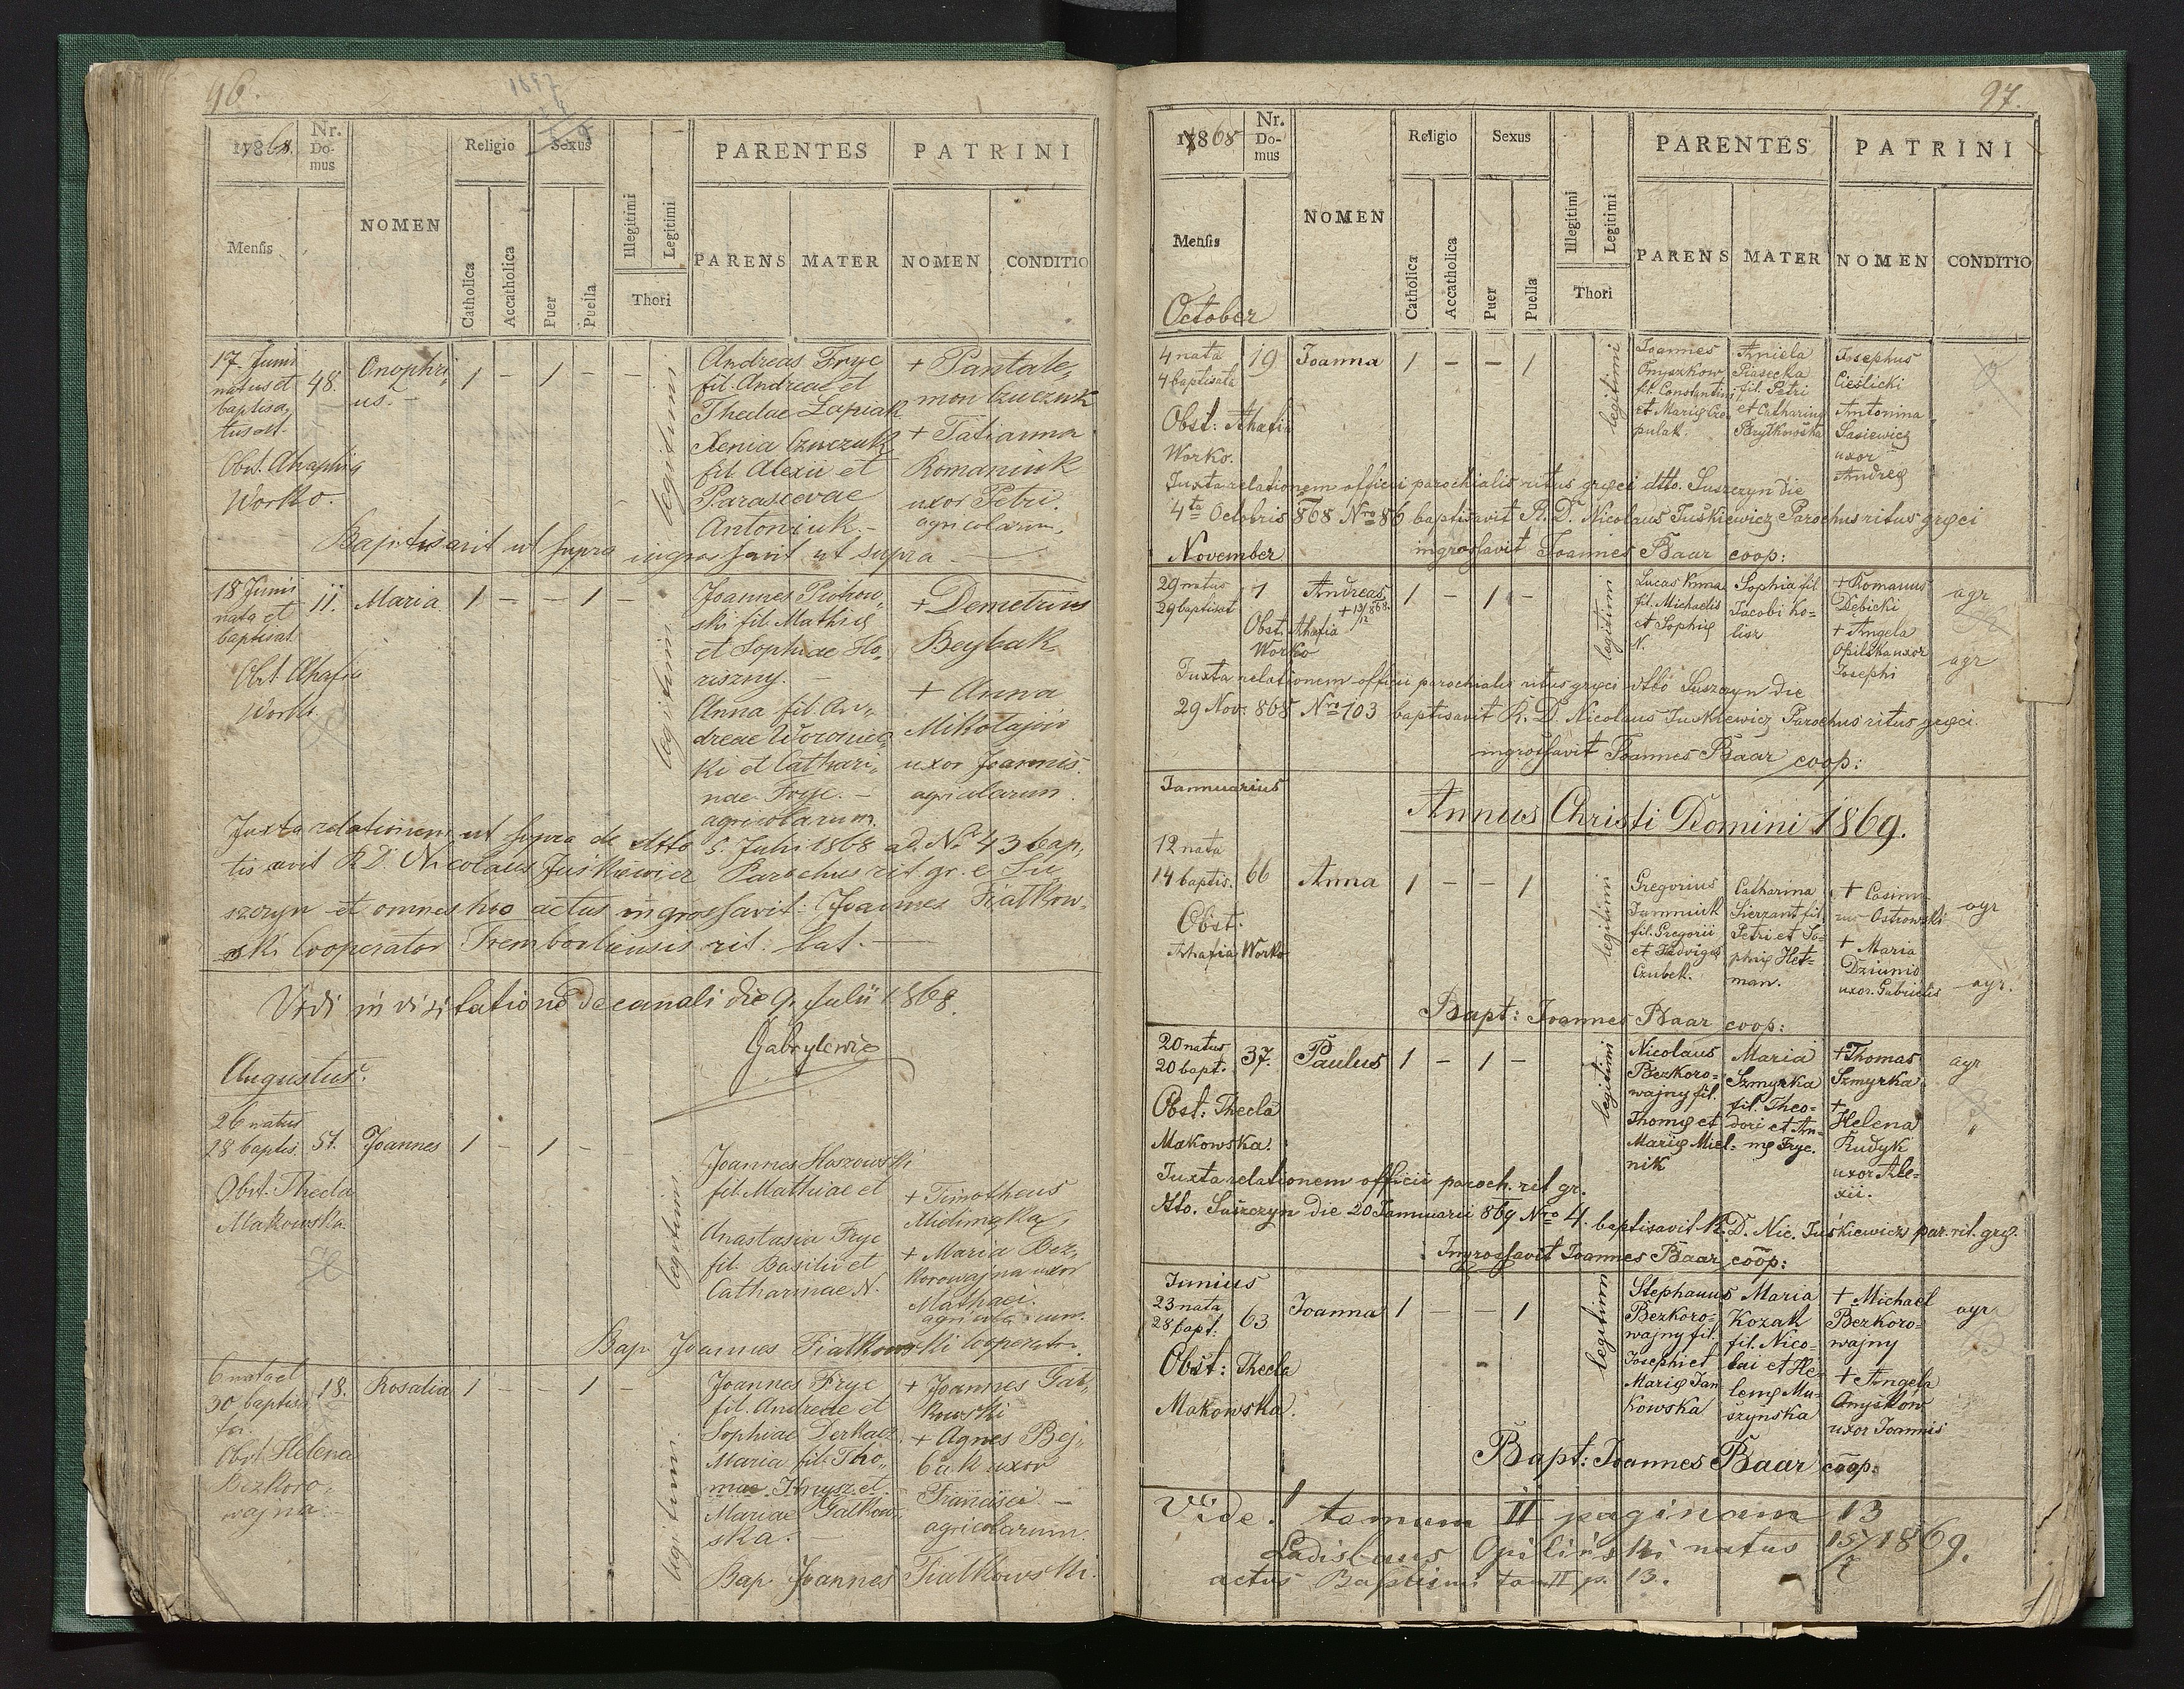 96.
1868.
Nr.
Do-
mus
Religio
Sexus
PARENTES
PATRINI
Mensis
NOMEN
Catholica
Accatholica
Puer
Puella
Illegitimi
Legitimi
Thori
PARENS
MATER
NOMEN
CONDITIO
17 Junii
natus et
baptisa,
tus est.
Obst. Ahaphia
Worko.
48.
Onophri,
us.-
1 - 1 - -
legitimi
Andreas Fryc
fil. Andreae et
Theclae Łapiak
Xenia Czuczuk
fil. Alexii et
Parascevae
Antoniuk.-
+ Pantale,
mon Czuczuk
+ Tatianna
Romaniuk
uxor Petri.
agricolarum.
Baptisavit ut supra ingrossavit ut supra
18 Junii
nata et
baptisat.
Obst Ahafia
Worko
11.
Maria
1 - - 1 -
legitimi
Joannes Piotrow,
ski fil. Mathię
et Sophiae Ho,
riszny.-
Anna fil. An,
dreae Woronic,
ki et Cathari,
nae Fryc.-
agricolarum.
+ Demetrius
Beybak
+ Anna
Mikolajów
uxor Joannis.
agricolarum.
Juxta relationem ut supra de dtto 5. Julii 1868 ad. No 43 bap,
tisavit R.D. Nicolaus Juśkiewicz Parochus rit. gr. e Su,
szczyn et omnes hos actus ingrossavit Joannes Fiatkow,
ski Cooperator Trembovliensis rit. lat.
Vidi in visitatione decanali die 9. Julii 1868.
Gabrylewicz
Augustus.
26 natus
28 baptis.
51.
Joannes
1 - 1 -
Obst. Thecla
Makowska.
legitimi
Joannes Hoszowski
fil. Mathiae et
Anastasia Fryc
fil. Basilii et
Catharinae N.
+ Timotheus
+ Maria Bez,
korowajna uxor
Mathaei.
agricolarum.
Bap Joannes Fiatkowski Cooperator.
6 nata et
30 baptisa,
ta.
18.
Rosalia
1 - - 1 -
Obst Helena
Bezkoro,
wajna.-
legitimi
Joannes Fryc
fil. Andreae et
Sophiae Derkacz.
Maria fil. Tho,
mae Kmysz et
Mariae Gałkow,
ska.
+ Joannes Gał,
kowski
+ Agnes Bej,
bak uxor
Francisci.-
agricolarum.
Bap Joannes Fiatkowski.
97.
1868
Nr.
Do-
mus
Religio
Sexus
PARENTES
PATRINI
Mensis
NOMEN
Catholica
Accatholica
Puer
Puella
Illegitimi
Legitimi
Thori
PARENS
MATER
NOMEN
CONDITIO
October
4 nata
4 baptisata
19
Joanna
1 - - 1
Obst: Ahafia
Worko.
legitimi
Joannes
Onyszkow
fil. Constantini
et Marię Cze,
pulak.
Aniela
Piasecka
fil. Petri
et Catharinę
Brytkowska
Josephus
Cieślicki
Antonina
Sasiewicz
uxor
Andreę
Juxta relationem officii parochialis ritus gręci dtto. Suszczyn die
4ta Octobris 868 Nro 86 baptisavit R. D. Nicolaus Juśkiewicz Parochus ritus gręci
ingrossavit Joannes Baar coop:
November
29 natus
29 baptisat
7
Andreas
+ 13/12 868
1 - 1 -
Obst. Ahafia
Worko
legitimi
Lucas Kma
fil. Michaelis
et Sophię
N.
Sophia fil.
Jacobi Ho-
lisz
+ Romanus
Dębicki
+ Angela
Opilska uxor
Josephi
agr
agr
Juxta relationem officii parochialis ritus gręci dtto Suszczyn die
29 Nov. 868 Nro 103 baptisavit R. D. Nicolaus Juśkiewicz Parochus ritus gręci.
ingrossavit Joannes Baar coop:
Jannuarius
Annus Christi Domini 1869.
12 nata
14 baptis.
66
Anna
1 - - 1
Obst.
Ahafia Worko
legitimi
Gregorius
Jamniuk
fil. Gregorii
et Hedvigę
Czubek.
Catharina
Sierżant fil.
Petri et So-
phię Het-
man.
+ Casimi-
rus Ostrowski
+ Maria
Dziunio
uxor. Gabrielis
agr
agr.
Bapt: Joannes Baar coop:
20 natus
20 bapt.
37.
Paulus
1 - 1 -
Obst: Thecla
Makowska.
legitimi
Nicolaus
Bezkoro-
wajny fil.
Thomę et
Marię Miel-
nik
Maria
Szmyrka
fil. Theo-
dori et An-
nę Fryc.
+ Thomas
Szmyrka
+
Helena
Rudyk
uxor Ale-
xii.
agr
"
Juxta relationem officii paroch. rit gr.
dtto. Suszczyn die 20 Jannuarii 869 Nro 4. baptisavit R. D. Nic. Juśkiewicz par. rit. gręc.
Ingrossavit Joannes Baar coop:
Junius
23 nata
28 bapt:
63
Joanna
1 - - 1
Obst: Thecla
Makowska.
legitimi
Stephanus
Bezkoro-
wajny fil.
Josephi et
Marię Jan
kowska
Maria
Kozak
fil. Nico-
lai et He-
lenę Mu-
szyńska
+ Michael
Bezkoro-
wajny
+ Angela
Onyśkow
uxor Joannis
agr
Bapt: Joannes Baar coop:
Vide! tomum II paginam 13
Ladislaus Opiliński natus 15/7 1869.
actus Baptismi tom II p. 13.